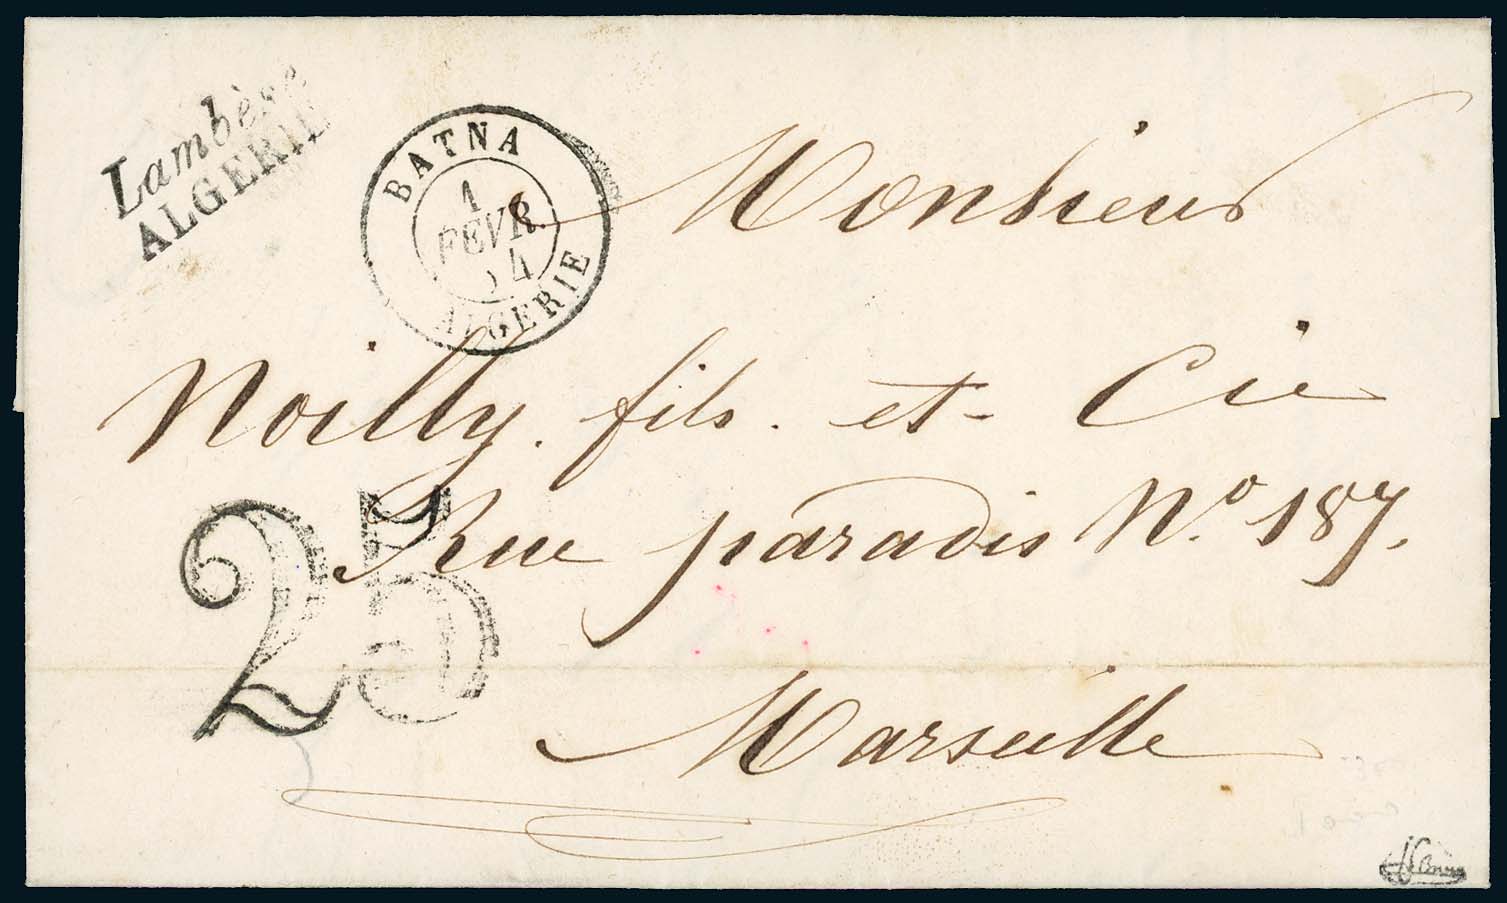 Lambèse
ALGERIE
BATNA
1
FEVR
54
ALGERIE
Monsieur
Noilly. fils. et Cie
25
Rue paradis Nº. 187.
Marseille